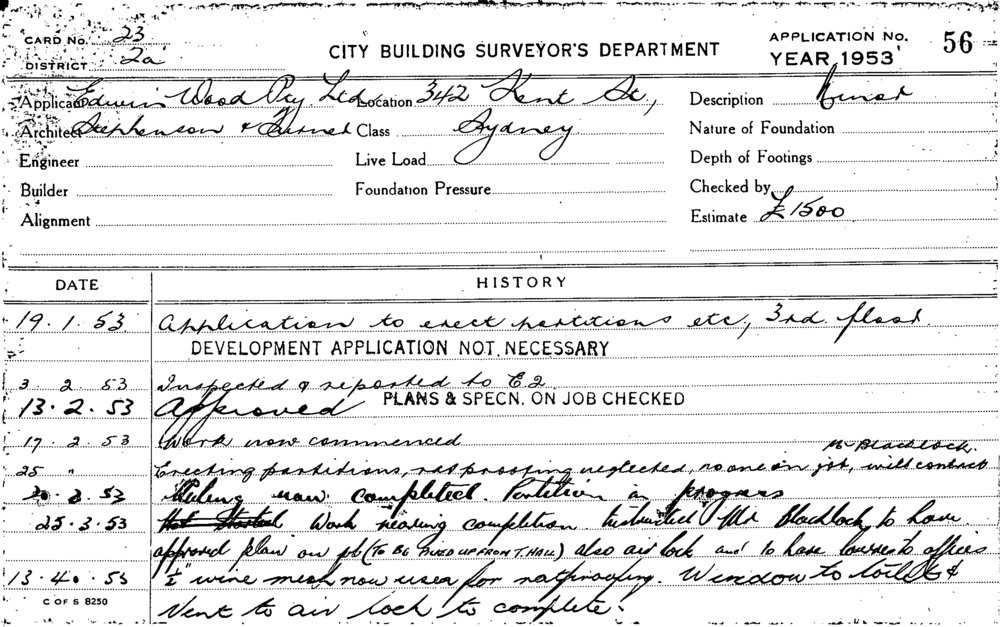 CARD No. 23
DISTRICT 2a
CITY BUILDING SURVEYOR'S DEPARTMENT
APPLICATION No. 56
YEAR 1953
Applicant Edwin Wood Pty Ltd Location 342 Kent St, Description Minor
Architect Stephenson & Turner Class Sydney Nature of Foundation
Engineer Live Load Depth of Footings
Builder Foundation Pressure Checked by
Alignment Estimate £1500
DATE HISTORY
19.1.53 Application to erect partitions etc, 3rd floor.
DEVELOPMENT APPLICATION NOT NECESSARY
3.2.53 Inspected & reported to E2
13.2.53 Approved PLANS & SPECN. ON JOB CHECKED
17.2.53 Work now commenced
Mr Blacklock.
25 " Erecting partitions, ratproofing neglected, no one on job, will contact
53 now completed. Partition in progress
25.3.53 Work nearing completion Instructed Mr Blacklock, to have
approved plan on job (TO BE PICKED UP FROM T. HALL) also air lock and to have louvres to offices
13.4.53 ½" wire mesh now used for ratproofing. Window to toilet &
C OF S 8250
Vent to air lock to complete.